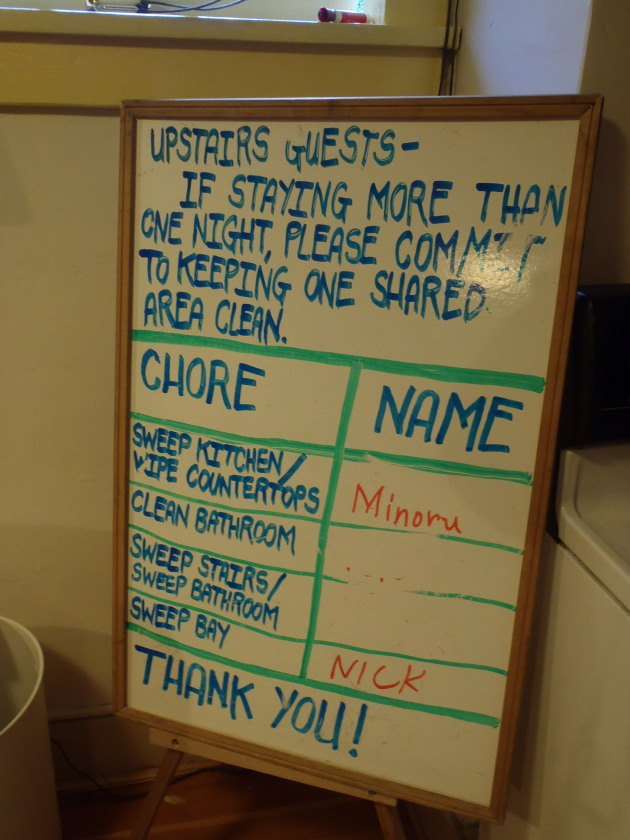 UPSTAIRS GUESTS-
IF STAYING MORE THAN
ONE NIGHT, PLEASE COMMIT
TO KEEPING ONE SHARED
AREA CLEAN.
CHORE NAME
SWEEP KITCHEN/
WIPE COUNTERTOPS
Minoru
CLEAN BATHROOM
SWEEP STAIRS/
SWEEP BATHROOM
SWEEP BAY
NICK
THANK YOU!